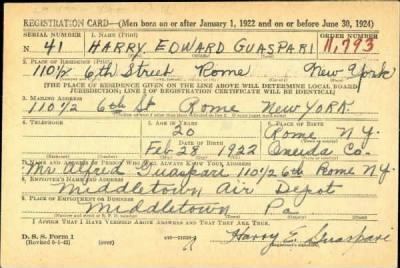 REGISTRATION CARD—(Men born on or after January 1, 1922 and on or before June 30, 1924)
SERIAL NUMBER 1. NAME (Print) ORDER NUMBER
N 41 HARRY EDWARD GUASPARI 11,793
2. PLACE OF RESIDENCE (Print)
110½ 6th Street Rome New York
[THE PLACE OF RESIDENCE GIVEN ON THE LINE ABOVE WILL DETERMINE LOCAL BOARD
JURISDICTION; LINE 2 OF REGISTRATION CERTIFICATE WILL BE IDENTICAL]
3. MAILING ADDRESS
110½ 6th St Rome NEW YORK
4. TELEPHONE 5. AGE IN YEARS 6. PLACE OF BIRTH
20 Rome N.Y.
DATE OF BIRTH
Feb 28 1922 Oneida Co.
7. NAME AND ADDRESS OF PERSON WHO WILL ALWAYS KNOW YOUR ADDRESS
Mr Alfred Guaspari 110½ 6th Rome N.Y.
8. EMPLOYER'S NAME AND ADDRESS
Middletown Air Depot
9. PLACE OF EMPLOYMENT OR BUSINESS
Middletown Pa
I AFFIRM THAT I HAVE VERIFIED ABOVE ANSWERS AND THAT THEY ARE TRUE.
D. S. S. Form 1
Harry E. Guaspari